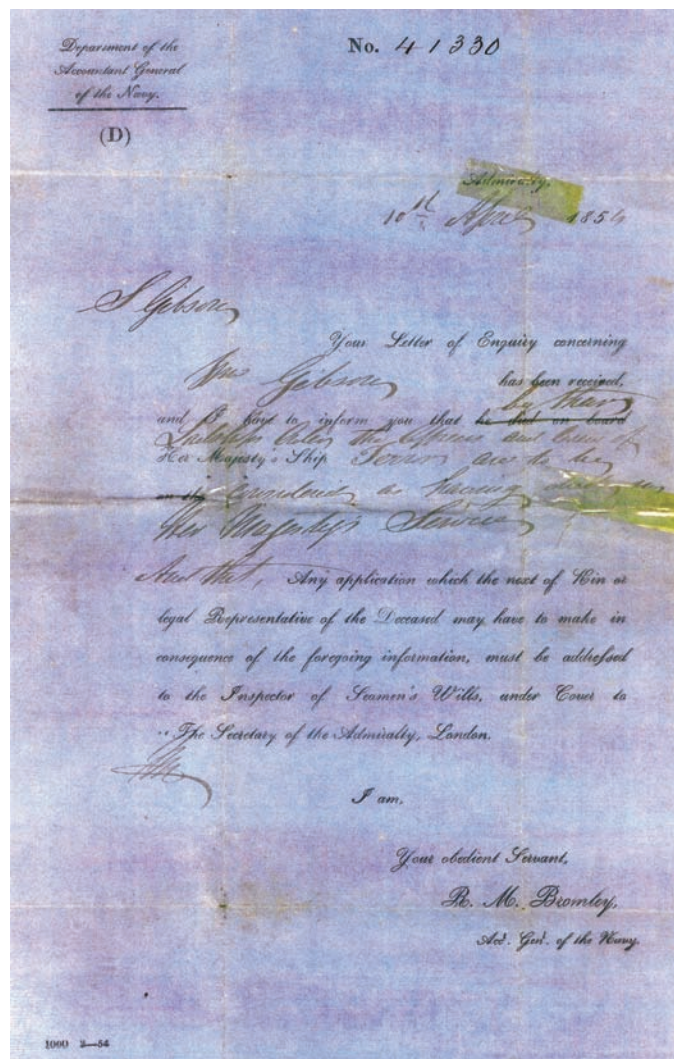 Department of the
Accountant General
of the Navy.
(D)
No. 41330
Admiralty,
10th April 1854
S Gibson
Your Letter of Enquiry concerning
Wm Gibson has been received,
by their
and I have to inform you that he died on board
Lordships Order the Officers and Crew of
Her Majesty's Ship Terror are to be
on the considered as having died in
Her Majesty's Service
And that, Any application which the next of Kin or
legal Representative of the Deceased may have to make in
consequence of the foregoing information, must be addressed
to the Inspector of Seamen's Wills, under Cover to
"The Secretary of the Admiralty, London.
I am,
Your obedient Servant,
R. M. Bromley,
Acc. Genl. of the Navy.
1000 2—54